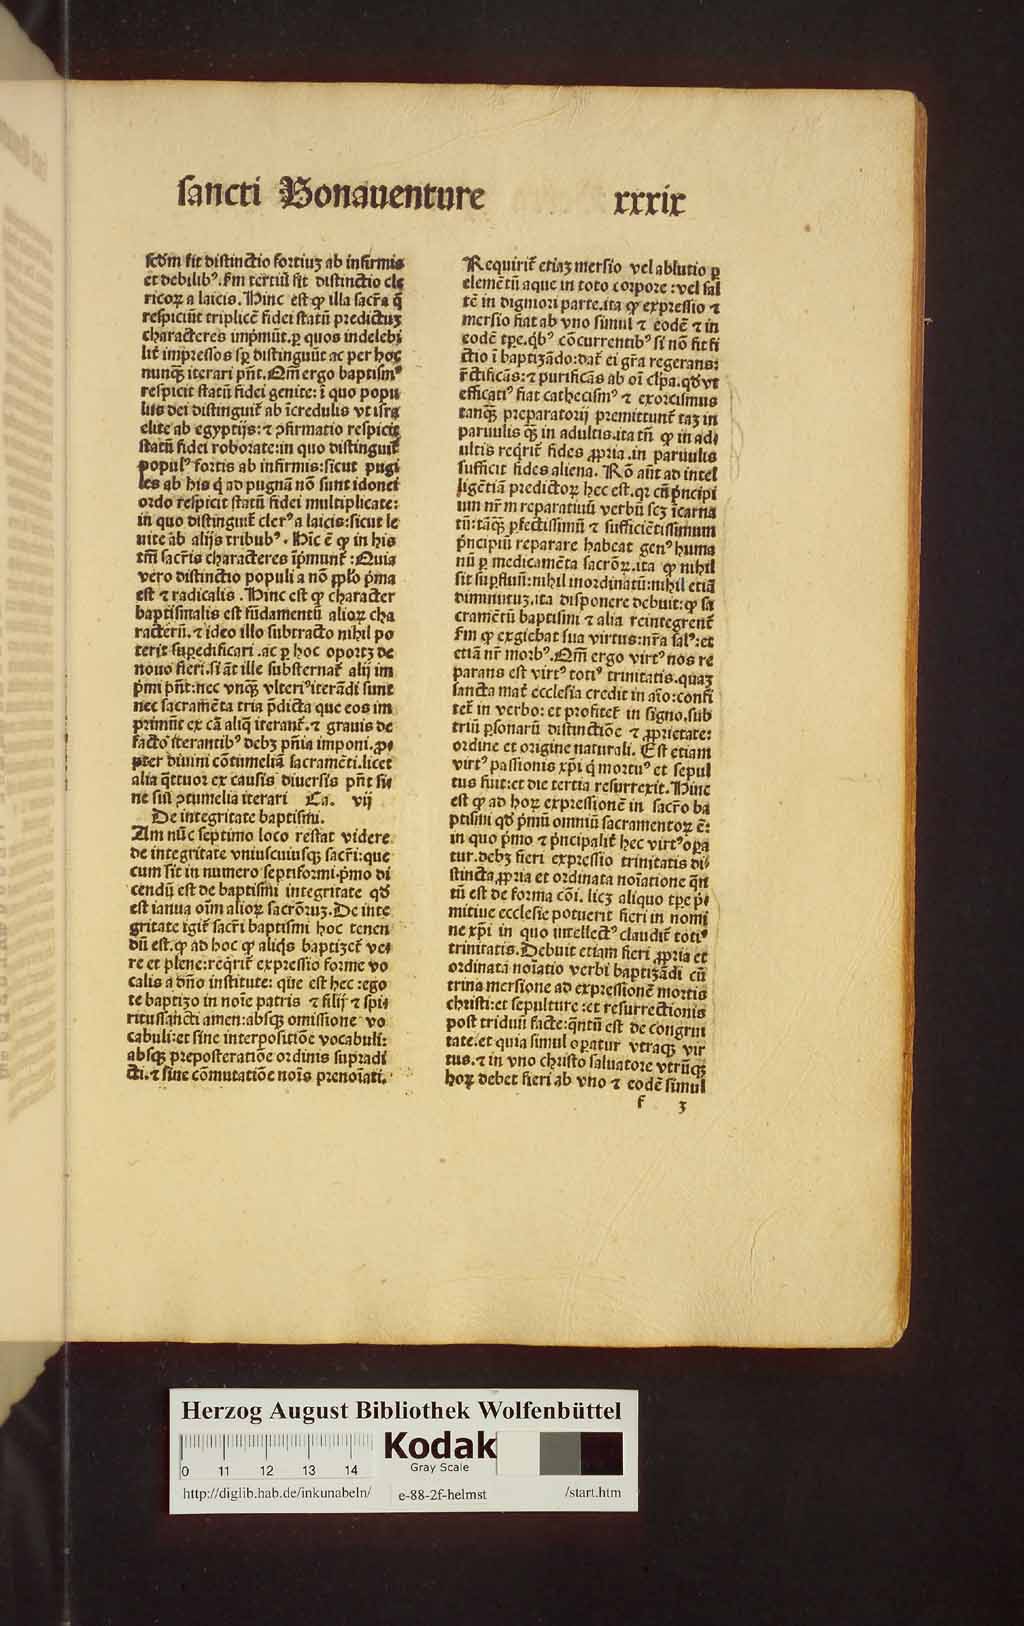 sancti Bonauenture xxxix
scďm sit distinctio fortiuꝫ ab infirmis
et debilibꝰ. ẜm tertiũ sit distinctio cle
ricoꝝ a laicis. Hinc est ꝙ illa sacr̃a q̃
respiciũt triplicẽ fidei statũ predictuꝫ
characteres imp̃mũt. ꝑ quos indelebi
lit̃ impressos sꝑ distinguũt ac per hoc
nunqꝫ iterari pñt. Qm̃ ergo baptismꝰ
respicit statũ fidei genite: ĩ quo popu
lus dei distinguit̃ ab ĩcredulis vt isra
elite ab egyptijs: ⁊ ꝯfirmatio respicit
statũ fidei roborate: in quo distinguit̃
populꝰ fortis ab infirmis: sicut pugi
les ab his q̃ ad pugnã nõ sunt idonei
ordo respicit statũ fidei multiplicate:
in quo distinguit̃ clerꝰ a laicis: sicut le
uite ab alijs tribubꝰ. Hĩc ẽ ꝙ in his
tm̃ sacr̃is characteres ĩp̃munt̃: Quia
vero distinctio populi a nõ ꝓpl̃o p̃ma
est ⁊ radicalis. Hinc est ꝙ character
baptismalis est fũdamentũ alioꝝ cha
racterũ. ⁊ ideo illo subtracto nihil po
terit suꝑedificari. ac ꝑ hoc oportꝫ de
nouo fieri. si ãt ille substernat̃ alij im
p̃mi pñt: nec vnqꝫ vlteriꝰ iterãdi sunt
nec sacramẽta tria p̃dicta que eos im
primũt ex cã aliq̃ iterant̃. ⁊ grauis de
facto iterantibꝰ debꝫ pñia imponi. ꝓ⸗
pter diuini cõtumeliã sacramẽti. licet
alia q̃ttuor ex causis diuersis pñt si⸗
ne sui ꝯtumelia iterari Ca. vij
De integritate baptismi.
Am nũc septimo loco restat videre
de integritate vniuscuiusqꝫ sacr̃i: que
cum sit in numero septiformi. p̃mo di
cendũ est de baptismi integritate qđ
est ianua oĩm alioꝝ sacrõruꝫ. De inte
gritate igit̃ sacr̃i baptismi hoc tenen
dũ est. ꝙ ad hoc ꝙ aliq̃s baptizet̃ ve⸗
re et plene: req̃rit̃ expressio forme vo
calis a dño institute: que est hec: ego
te baptizo in noĩe patris ⁊ filij ⁊ spi⸗
ritussancti amen: absqꝫ omissione vo
cabuli: et sine interpositiõe vocabuli:
absqꝫ preposteratiõe ordinis supradi
cti. ⁊ sine cõmutatiõe noĩs prenoĩati.
Requirit̃ etiaꝫ mersio vel ablutio ꝑ
elemẽtũ aque in toto corpore: vel sal
tẽ in digniori parte. ita ꝙ expressio ⁊
mersio fiat ab vno simul ⁊ eodẽ ⁊ in
eodẽ tꝑe. q̃bꝰ cõcurrentibꝰ si nõ sit fi
ctio ĩ baptizãdo: dat̃ ei gr̃a regerans:
r̃ctificãs: ⁊ purificãs ab oĩ cl̃pa. qđ vt
efficatiꝰ fiat cathecismꝰ ⁊ exorcismus
tanqꝫ preparatorij premittunt̃ taꝫ in
paruulis qꝫ in adultis. ita tñ ꝙ in ad⸗
ultis req̃rit̃ fides ꝓpria. in paruulis
sufficit fides aliena. Rõ aũt ad intel
ligẽtiã predictoꝝ hec est. qꝛ cũ p̃ncipi
um nr̃m reparatiuũ verbũ scꝫ ĩcarna
tũ: tãqꝫ ꝑfectissimũ ⁊ sufficiẽtissimum
p̃ncipiũ reparare habeat genꝰ huma
nũ ꝑ medicamẽta sacrõꝝ. ita ꝙ nihil
sit suꝑfluũ: nihil inordinatũ: nihil etiã
diminutuꝫ. ita disponere debuit: ꝙ sa
cramẽtũ baptismi ⁊ alia reintegrent̃
ẜm ꝙ exgiebat sua virtus: nr̃a salꝰ: et
etiã nr̃ morbꝰ. Qm̃ ergo virtꝰ nos re
parans est virtꝰ totiꝰ trinitatis. quaꝫ
sancta mat̃ ecclesia credit in aĩo: confi
tet̃ in verbo: et profitet̃ in signo. sub
triũ ꝑsonarũ distinctiõe ⁊ ꝓprietate:
ordine et origine naturali. Est etiam
virtꝰ passionis xp̃i q̃ mortuꝰ et sepul
tus fuit: et die tertia resurrexit. Hinc
est ꝙ ad hoꝝ expressionẽ in sacr̃o ba
ptismi qđ p̃mũ omniũ sacramentoꝝ ẽ:
in quo p̃mo ⁊ p̃ncipalit̃ hec virtꝰ oꝑa
tur. debꝫ fieri expressio trinitatis di⸗
stincta, ꝓpria et ordinata noĩatione q̃n
tũ est de forma cõi. licꝫ aliquo tꝑe p̃i⸗
mitiue ecclesie potuerit fieri in nomi
ne xp̃i in quo intellectꝰ claudit̃ totiꝰ
trinitatis. Debuit etiam fieri ꝓpria et
ordinata noĩatio verbi baptizãdi cũ
trina mersione ad expressionẽ mortis
christi: et sepulture: et resurrectionis
post triduũ facte: q̃ntũ est de congrui
tate. et quia simul oꝑatur vtraqꝫ vir
tus. ⁊ in vno christo saluatore vtrũqꝫ
hoꝝ debet fieri ab vno ⁊ eodẽ simul
f 3
Herzog August Bibliothek Wolfenbüttel
0 11 12 13 14
Kodak
Gray Scale
http://diglib.hab.de/inkunabeln/ e-88-2f-helmst /start.htm